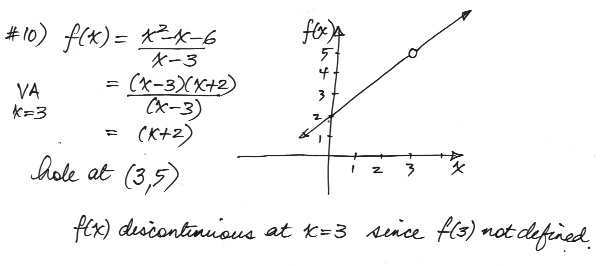 #10) f(x) = x²-x-6 / x-3
VA
x=3
= (x-3)(x+2) / (x-3)
= (x+2)
hole at (3,5)
f(x)
5
4
3
2
1
1 2 3
x
f(x) discontinuous at x=3 since f(3) not defined.